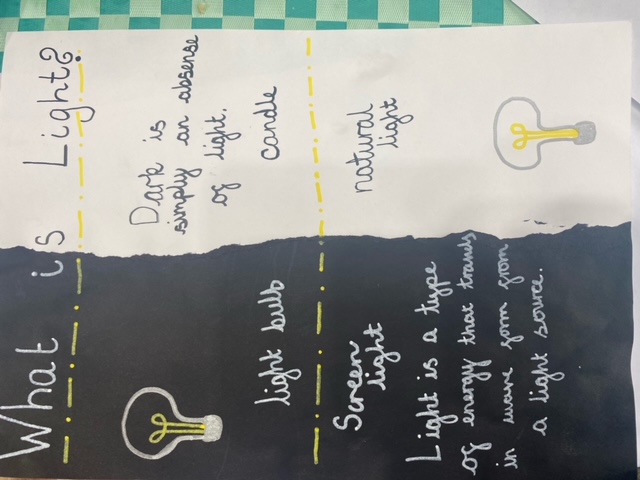 What is Light?
Dark is
simply an absense
of light.
light bulb
candle
Screen
light
natural
light
Light is a type
of energy that travels
in wave form from
a light source.